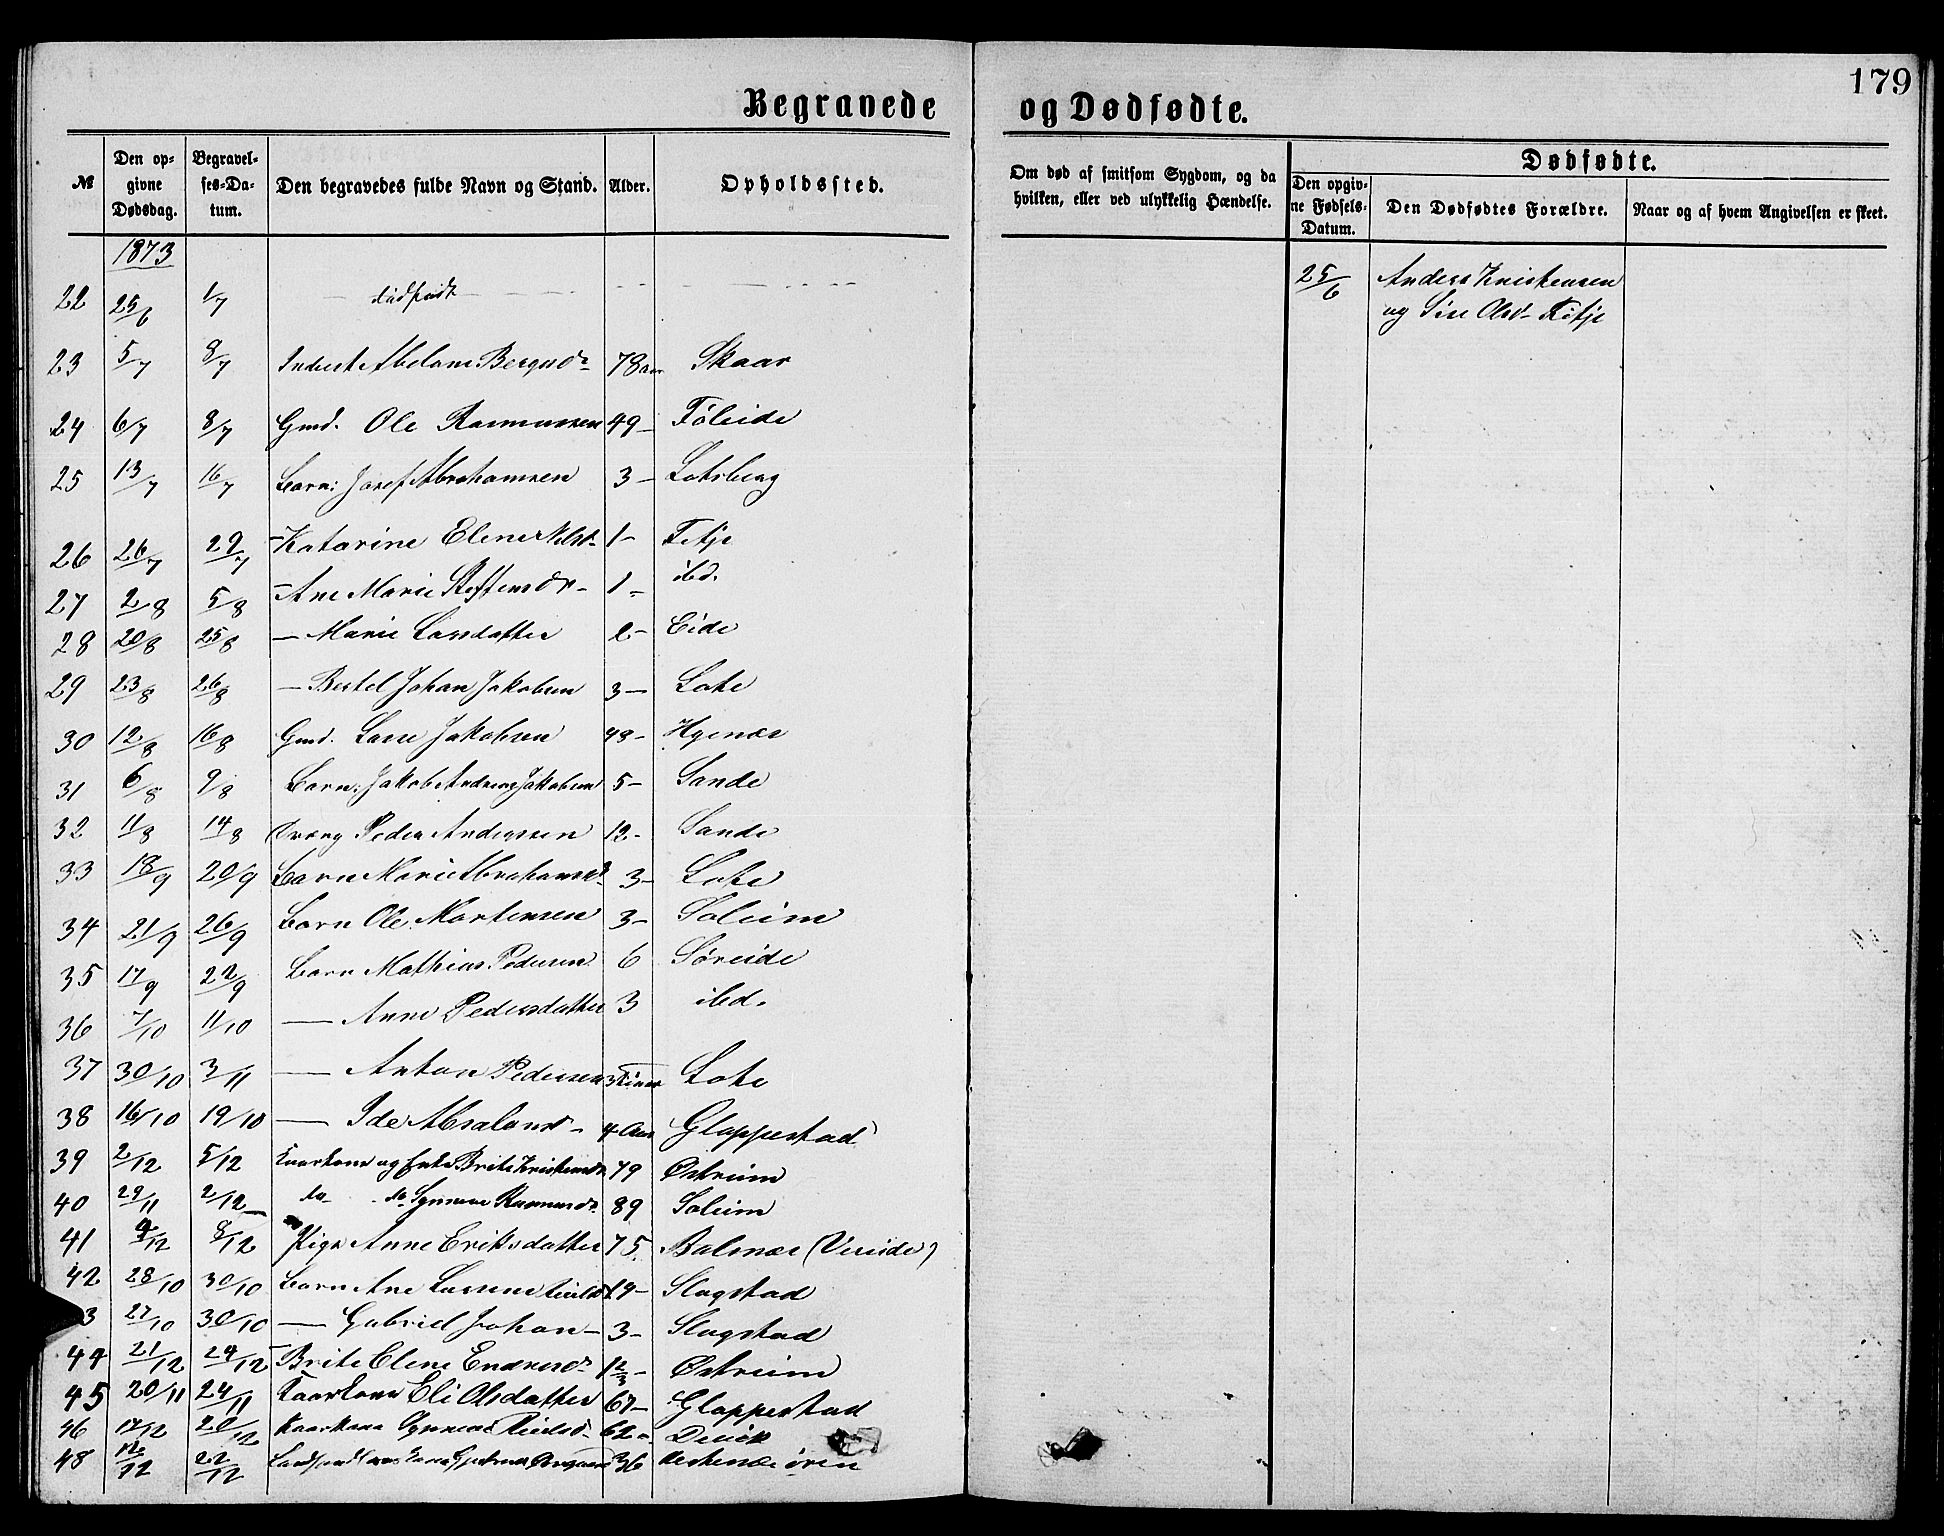 179
Begravede og Dødfødte.
№ Den opgivne Dødsdag. Begravelses-Datum. Den begravedes fulde Navn og Stand. Alder. Opholdssted. Om død af smitsom Sygdom, og da hvilken, eller ved ulykkelig Hændelse. Dødfødte. Den opgivne Fødsels-Datum. Den Dødfødtes Forældre. Naar og af hvem Angivelsen er skeet.
1873
22 25/6 1/7 — dødfødt — 25/6 Anders Kristensen
og Sire Olsd.
23 5/7 8/7 78 aar Skaar
24 6/7 8/7 Gmd. Ole Rasmussen 49 – Föleide
25 13/7 16/7 Barn: Josef Abrahamsen 3 – Lotsberg
26 26/7 29/7 – Katarine Elene Nilsd. 1 – Fitje
27 2/8 5/8 – Ane Marie Steffensdr. 1 – ibd.
28 20/8 25/8 – Marie Larsdatter 2 – Eide
29 23/8 26/8 – Bertel Johan Jakobsen 3 – Lote
30 12/8 16/8 Gmd. Lasse Jakobsen 48 – Hyenæs
31 6/8 9/8 Barn: Jakob Andreas Jakobsen 5 – Sande
32 11/8 14/8 Dreng Peder Anderssen 12 – Sande
33 18/9 20/9 Barn Marie Abrahamsd. 3 – Lote
34 21/9 26/9 Barn Ole Mortensen 3 – Soleim
35 17/9 22/9 Barn Mathias Pedersen 6 Söreide
36 7/10 11/10 — Anne Pedersdatter 3 ibd.
37 30/10 3/11 — Anton Pedersen Lote
38 16/10 19/10 — Ide Absalonsd. 4 Aar Gloppestad
39 2/12 5/12 Kaarkone og Enke Brite Kristensd. 79 Østreim
40 29/11 2/12 do do Synneve Rasmusd. 89 Soleim
41 4/12 8/12 Pige Anne Eriksdatter 75. Balnæs (Vereide)
42 28/10 30/10 Barn Ane Lassine Slagstad
43 27/10 30/10 — Gabriel Johan – 3 – Slagstad
44 21/12 24/12 – Brite Elene Endresdr. 1 2/3 – Østreim
45 20/11 24/11 Kaarkone Eli Olsdatter 67 – Gloppestad
46 17/12 20/12 Kaarkone Synneve 62 – Devik
48 22/12 36 Hestenæsören